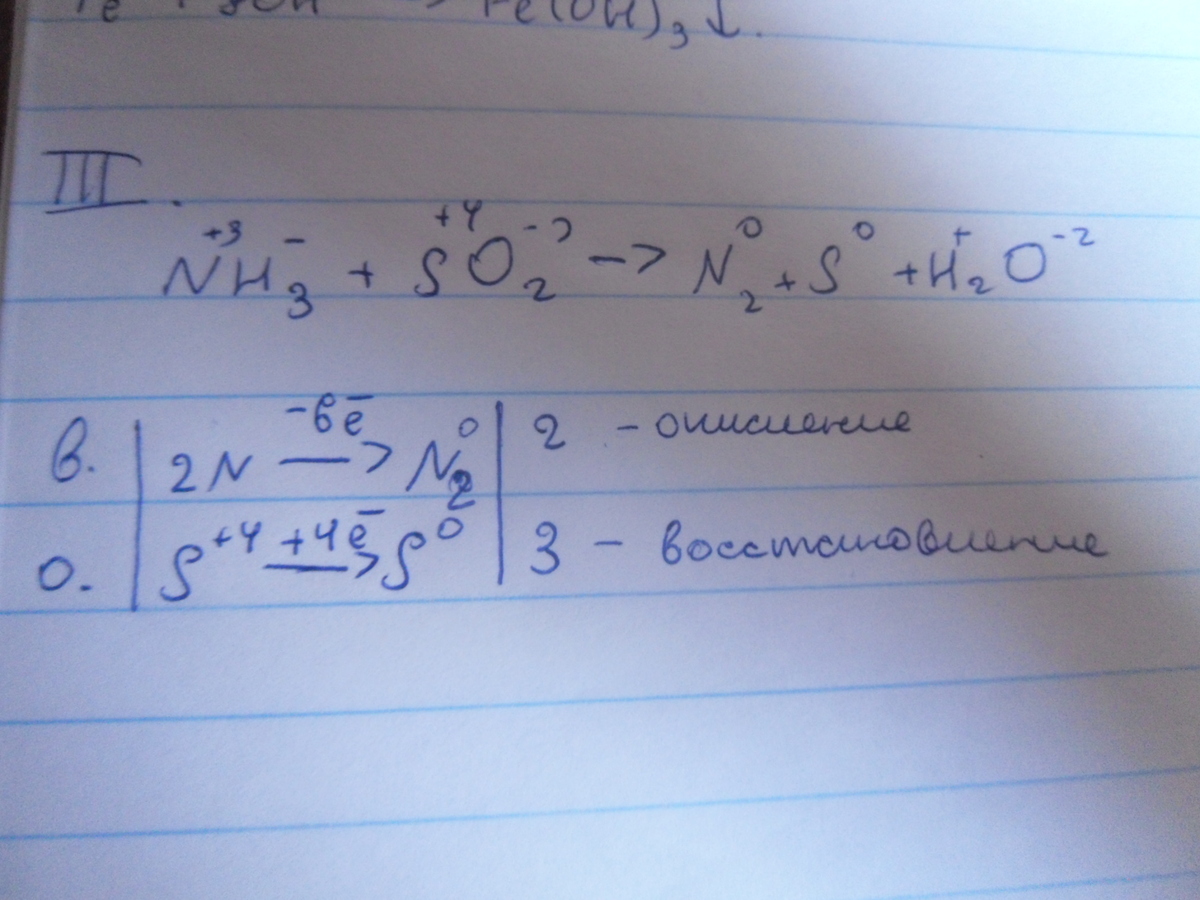 Fe(OH)₃↓.
III.
N⁺³H₃⁻ + S⁺⁴O₂⁻² -> N₂⁰ + S⁰ + H₂⁺O⁻²
в. | 2N —-6ē—> N₂⁰ | 2 - окисление
о. | S⁺⁴ —+4ē—> S⁰ | 3 - восстановление